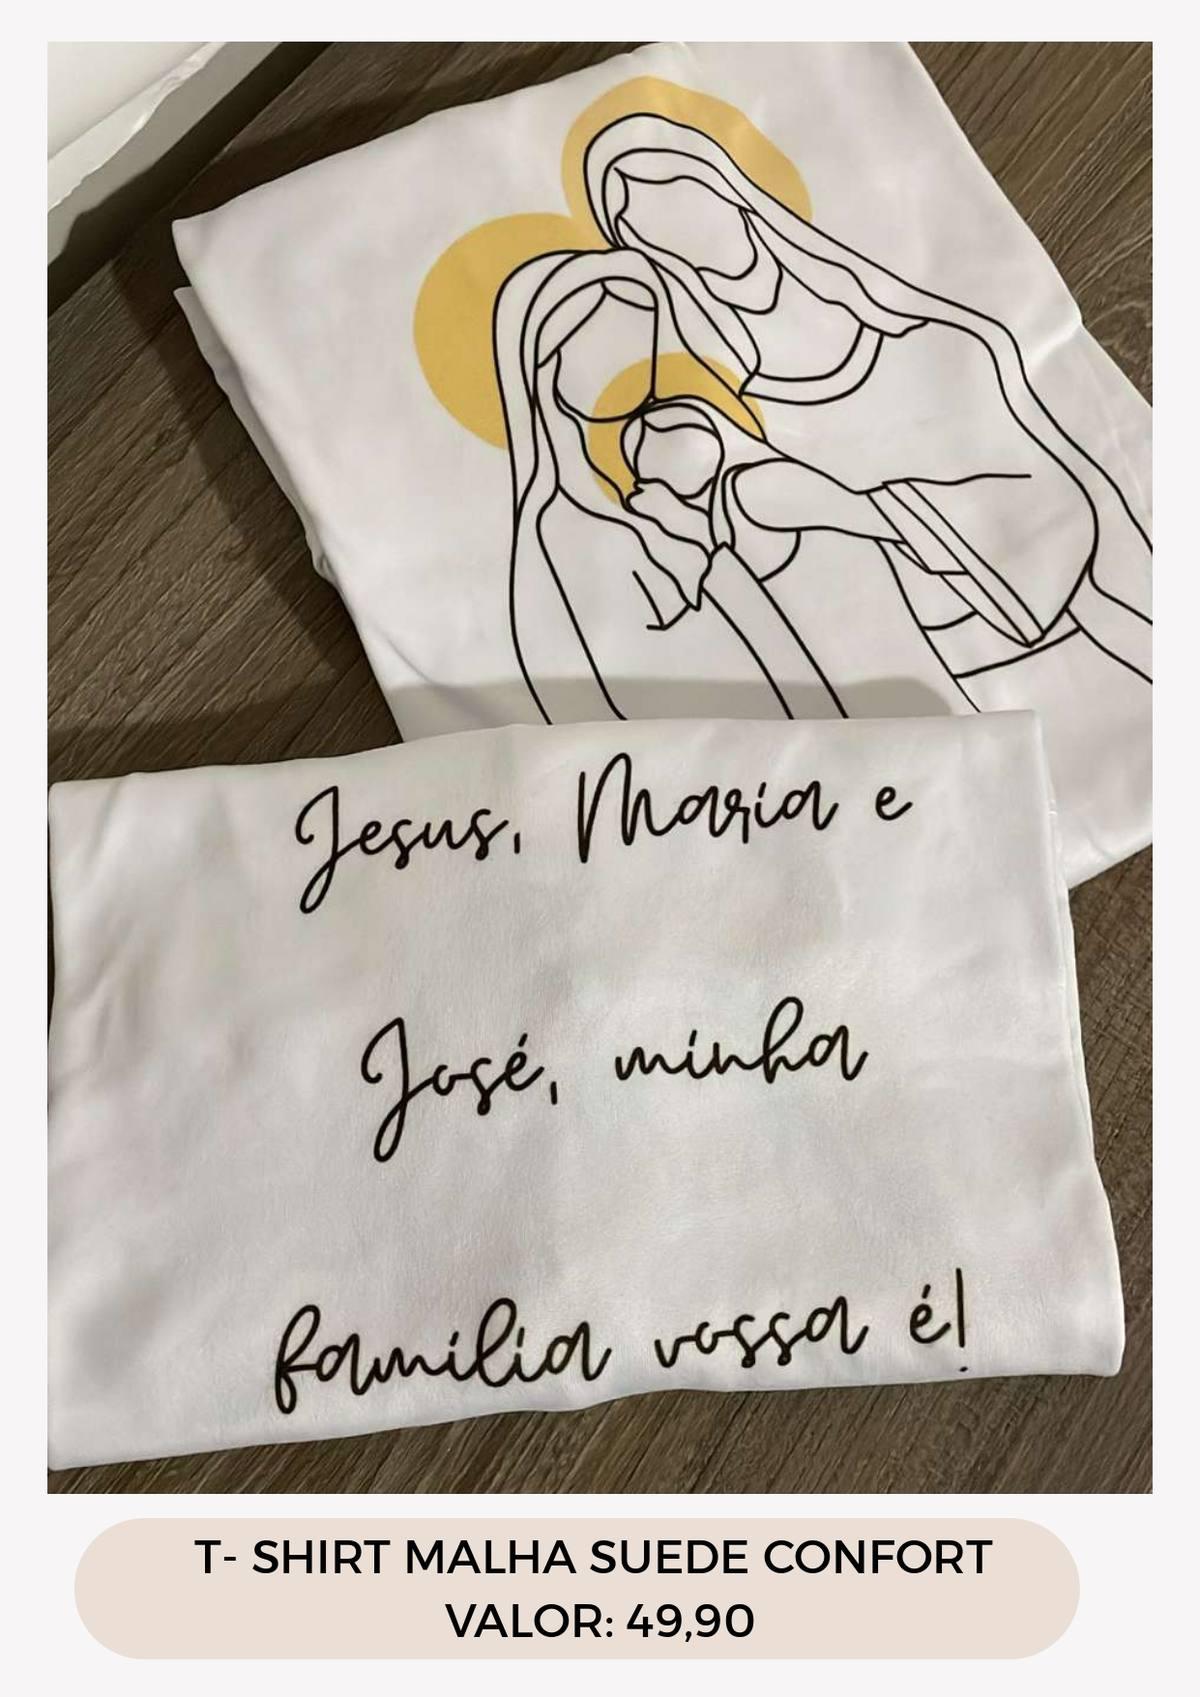 Jesus, Maria e
José, minha
família vossa é!
T- SHIRT MALHA SUEDE CONFORT
VALOR: 49,90